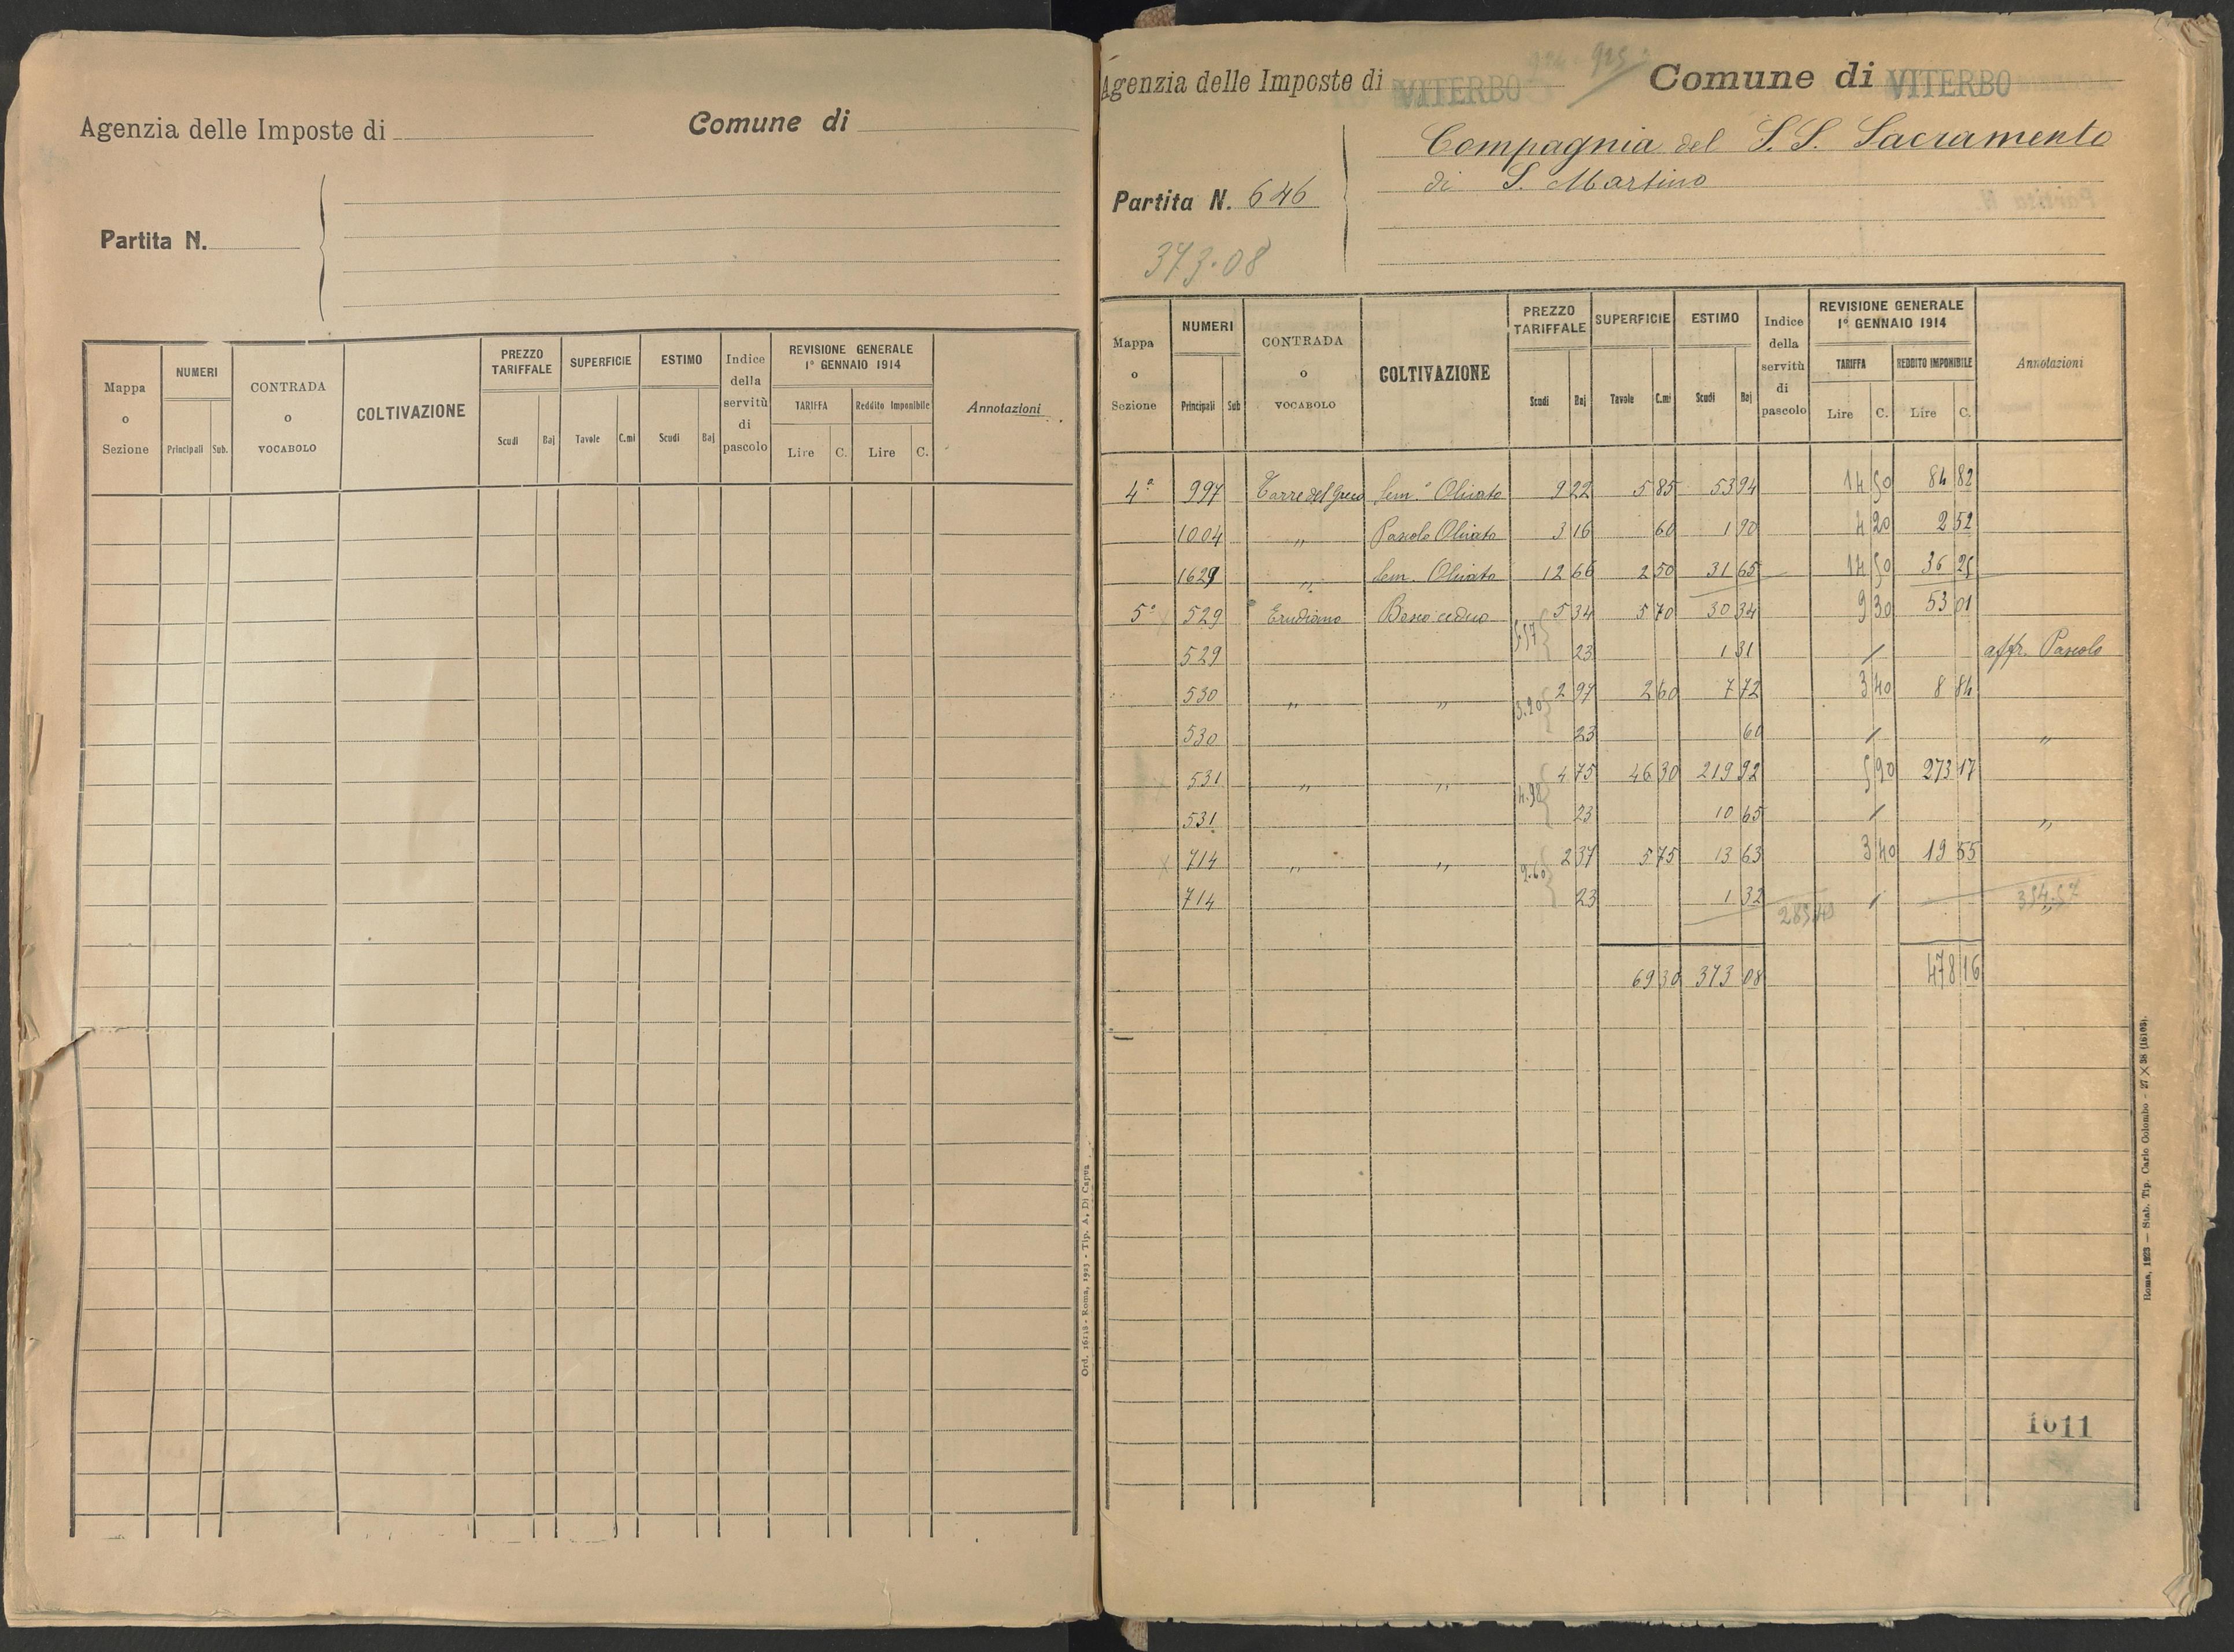 Agenzia delle Imposte di
Comune di
Partita N.
Mappa o Sezione
NUMERI
Principali Sub.
CONTRADA o VOCABOLO
COLTIVAZIONE
PREZZO TARIFFALE
Scudi Baj
SUPERFICIE
Tavole C.mi
ESTIMO
Scudi Baj
Indice della servitù di pascolo
REVISIONE GENERALE
1° GENNAIO 1914
TARIFFA
Lire C.
Reddito Imponibile
Lire C.
Annotazioni
Ord. 16118 - Roma, 1923 - Tip. A. Di Capua
Agenzia delle Imposte di VITERBO
925
Comune di VITERBO
Compagnia del S.S. Sacramento
di S. Martino
Partita N. 646
373.08
Mappa o Sezione
NUMERI
Principali Sub
CONTRADA o VOCABOLO
COLTIVAZIONE
PREZZO TARIFFALE
Scudi Baj
SUPERFICIE
Tavole C.mi
ESTIMO
Scudi Baj
Indice della servitù di pascolo
REVISIONE GENERALE
1° GENNAIO 1914
TARIFFA
Lire C.
REDDITO IMPONIBILE
Lire C.
Annotazioni
4ª 997 Torre del Greco Sem.º Olivato 9 22 5 85 53 94 14 50 84 82
1004 " Pascolo Olivato 3 16 60 1 90 4 20 2 52
1629 " Sem. Olivato 12 66 2 50 31 65 14 50 36 25
5ª 529 Bosco ceduo 5 34 5 70 30 34 9 30 53 01
5.57
529 23 1 31 / affr. Pascolo
530 " " 2 97 2 60 7 72 3 40 8 84
3.20
530 23 60 / "
531 " " 4 75 46 30 219 92 5 90 273 17
4.98
531 23 10 65 / "
714 " " 2 37 5 75 13 63 3 40 19 55
2.60
714 23 1 32 / "
285.49
354.57
69 30 373 08 478 16
1011
Roma, 1923 — Stab. Tip. Carlo Colombo - 27 X 38 (16103).